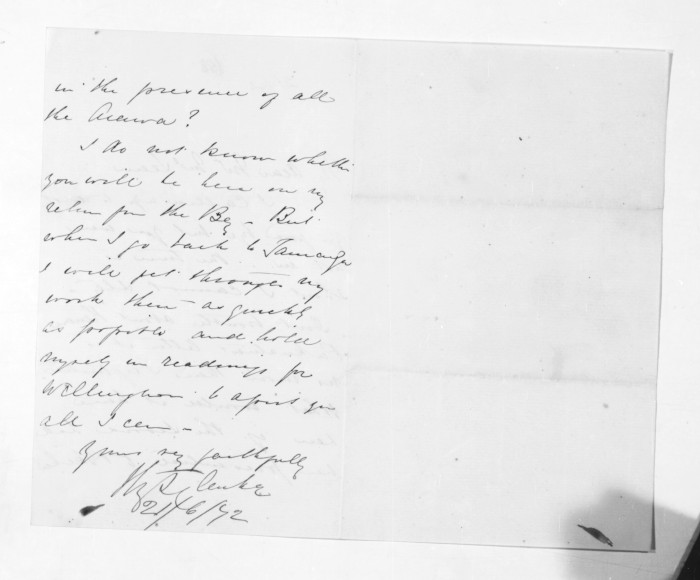 in the presence of all
the Arawa?
I do not know whether
you will be here on my
return from the Bay – But
when I go back to Tauranga
I will get through my
work there – as quickly
as possible and hold
myself in readiness for
Wellington to assist you
all I can –
Yours very faithfully
H T Clarke
21/6/72